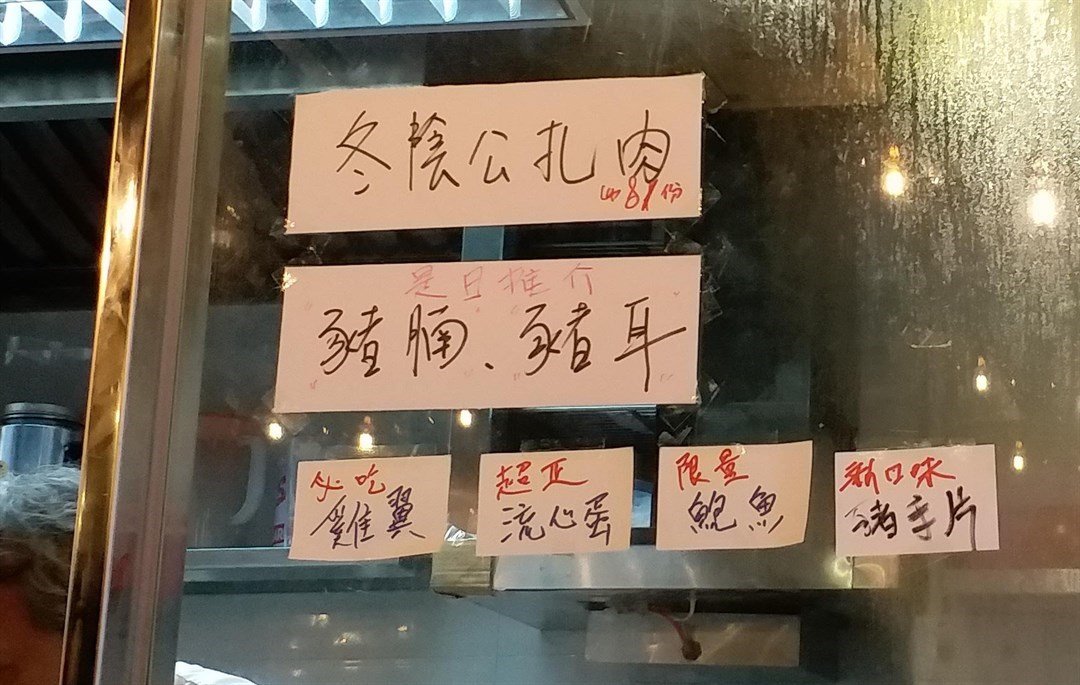 冬陰公扎肉
81份
是日推介
豬腩、豬耳
必吃
雞翼
超正
流心蛋
限量
鯢魚
新口味
豬手片